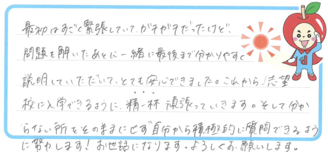 最初はすごく緊張していて、ガチガチだったけど
問題を解いたあとに一緒に最後まで分かりやすく
説明していただいて、とても安心できました。これから志望
校に入学できるように、精一杯頑張っていきます。そして分か
らない所をそのままにせず自分から積極的に質問できるよう
に努力します!お世話になります。よろしくお願いします。